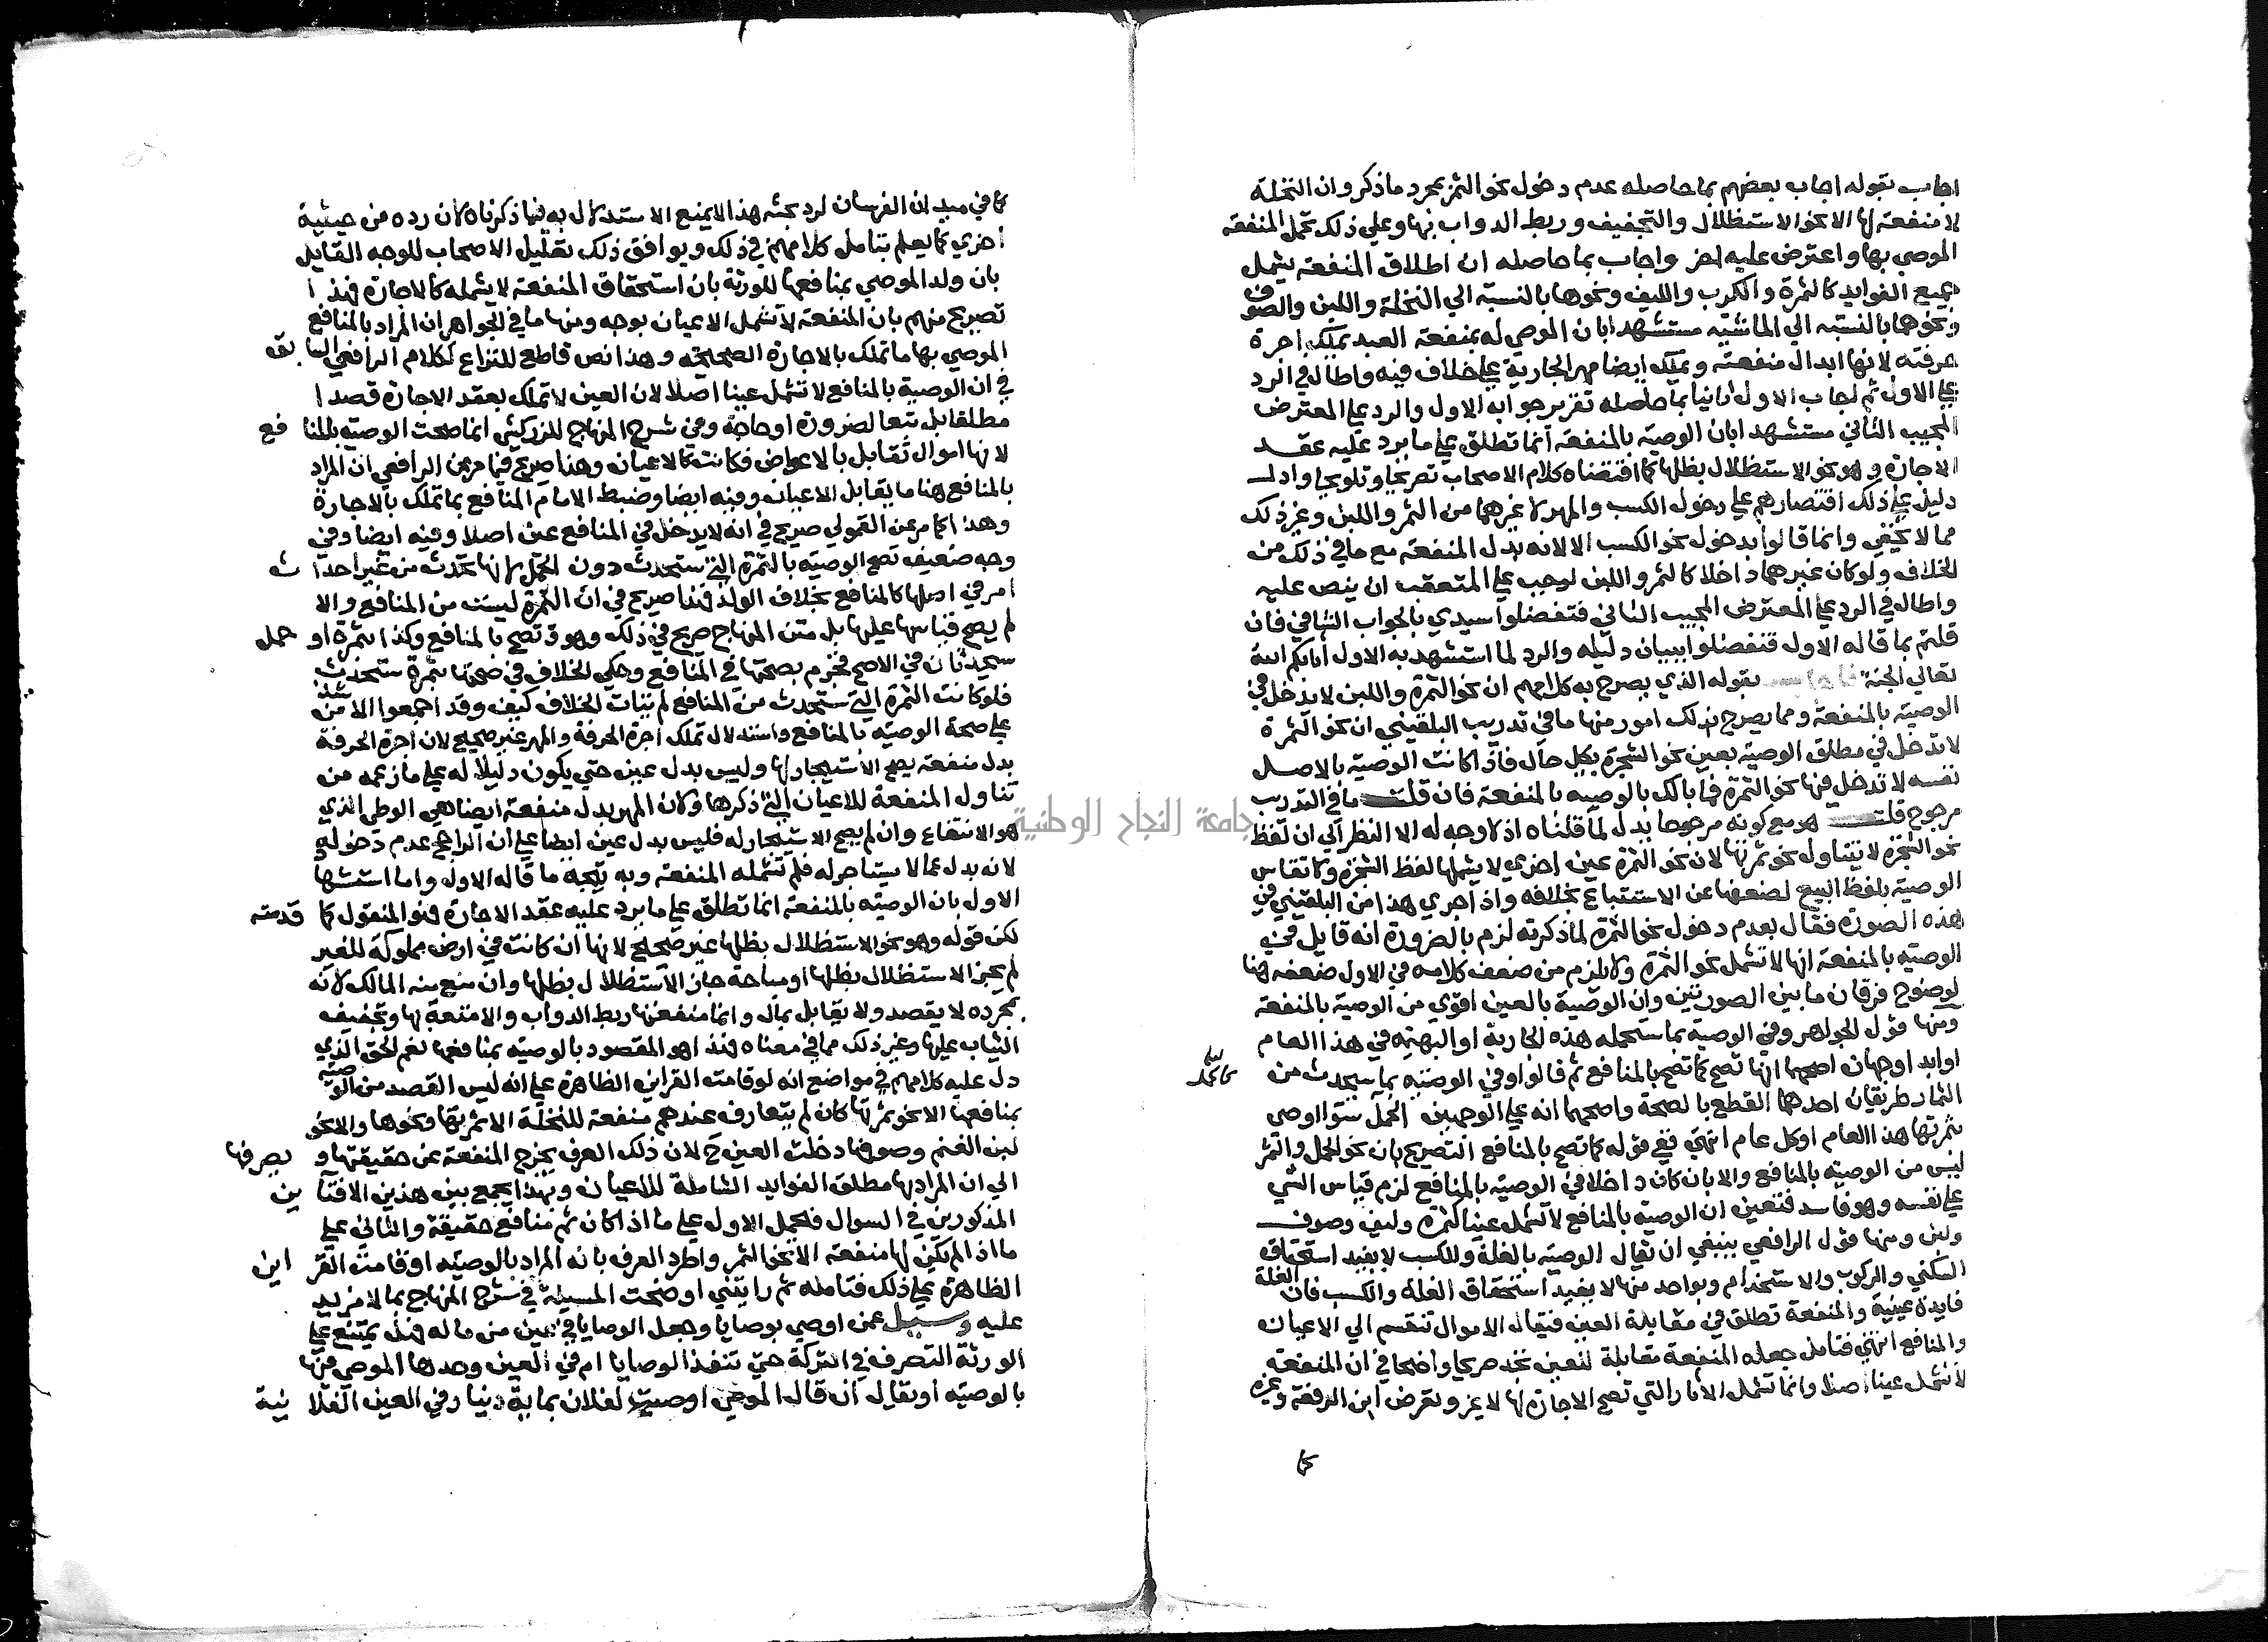 اجاب بقوله اجاب بعضهم بما حاصله عدم دخول نحو الثمر بمجرد ما ذكر وان النخلة
لا منفعة لها الا نحو الاستظلال والتجفيف وربط الدواب بها وعلي ذلك تحمل المنفعة
الموصي بها واعترض عليه اخر واجاب بما حاصله ان اطلاق المنفعة يشمل
جميع الفوايد كالثمرة والكرب والليف ونحوها بالنسبة الي النخلة واللبن والصوف
ونحوهما بالنسبه الي الماشيه مستشهدا بان الموصي له بمنفعة العبد يملك اجرة
حرفته لانها ابدال منفعته ويملك ايضا مهر الجارية علي خلاف فيه واطال في الرد
علي الاول ثم اجاب الاول ثانيا بما حاصله تقرير جوابه الاول والرد علي المعترض
المجيب الثاني مستشهدا بان الوصية بالمنفعة انما تطلق علي ما يرد عليه عقد
الاجارة وهو نحو الاستظلال بظلها كما اقتضاه كلام الاصحاب تصريحا وتلويحا وادل
دليل علي ذلك اقتصارهم علي دخول الكسب والمهر لا غيرهما من الثمر واللبن وغير ذلك
مما لا يخفي وانما قالوا بدخول نحو الكسب الا لانه بدل المنفعة مع ما في ذلك من
الخلاف ولو كان غيرهما داخلا كالثمر واللبن لوجب علي المتعقب ان ينص عليه
واطال في الرد علي المعترض المجيب الثاني فتفضلوا سيدي بالجواب الشافي فان
قلتم بما قاله الاول فتفضلوا ببيان دليله والرد لما استشهد به الاول أثابكم الله
تعالي الجنة بقوله الذي يصرح به كلامهم ان نحو الثمرة واللبن لا يدخل في
الوصية بالمنفعة ومما يصرح بذلك امور منها ما في تدريب البلقيني ان نحو الثمرة
لا تدخل في مطلق الوصية بعين نحو الشجرة بكل حال فاذا كانت الوصية بالاصل
نفسه لا تدخل فيها نحو الثمرة فما بالك بالوصيه بالمنفعة فان قلت ما في التدريب
مرجوح قلت هو مع كونه مرجوحا يدل لما قلناه اذ لا وجه له الا النظر الي ان لفظ
نحو الشجرة لا يتناول نحو ثمرتها لان نحو الثمرة عين اخري لا يشملها لفظ الشجرة ولا تقاس
الوصية بلفظ البيع لضعفها عن الاستتباع بخلافه واذا جري هذا من البلقيني في
هذه الصورة فقال بعدم دخول نحو الثمرة لما ذكرته لزم بالضرورة انه قايل في
الوصية بالمنفعة انها لا تشمل نحو الثمرة ولا يلزم من ضعف كلامه في الاول ضعفه هنا
لوضوح فرقان ما بين الصورتين وان الوصية بالعين اقوي من الوصية بالمنفعة
ومنها قول الجواهر وفي الوصية بما ستحمله هذه الجارية او البهيمه في هذا العام
او ابدا وجهان اصحهما انها تصح كما تصح بالمنافع ثم قالوا وفي الوصيه بما سيحدث من
الثمار طريقان احدهما القطع بالصحة واصحهما انه علي الوجهين الحمل سوا اوصي
بثمرتها هذا العام او كل عام انتهي ففي قوله كما تصح بالمنافع التصريح بان نحو الحمل والثمر
ليس من الوصيه بالمنافع والا بان كان داخلا في الوصيه بالمنافع لزم قياس الشي
علي نفسه وهو فاسد فتعين ان الوصيه بالمنافع لا تشمل عينا كثمرة وليف وصوف
ولبن ومنها قول الرافعي ينبغي ان يقال الوصيه بالغلة والكسب لا يفيد استحقاق
السكني والركوب والاستخدام وبواحد منها لا يفيد استحقاق الغلة والكسب فان الغلة
فايدة عينية والمنفعة تطلق في مقابلة العين فيقال الاموال تنقسم الي الاعيان
والمنافع انتهي فتامل جعله المنفعة مقابلة للعين تجد صريحا واضحا في ان المنفعه
لا تشمل عينا اصلا وانما تشمل الآثار التي تصح الاجارة لها لا غير وتعرض ابن الرفعة وغيره
كما
كما في ميدان الفرسان لرد بحثه هذا لا يمنع الاستدلال به فيما ذكرناه لان رده من حيثية
أخري كما يعلم بتامل كلامهم في ذلك ويوافق ذلك تعليل الاصحاب للوجه القايل
بان ولد الموصي بمنافعها للورثة بان استحقاق المنفعة لا يشمله كالاجارة فهذا
تصريح منهم بان المنفعة لا تشمل الاعيان بوجه ومنها ما في الجواهر ان المراد بالمنافع
الموصي بها ما تملك بالاجارة الصحيحة وهذا نص قاطع للنزاع لكلام الرافعي السابق
في ان الوصية بالمنافع لا تشمل عينا اصلا لان العين لا تملك بعقد الاجارة قصدا
مطلقا بل تبعا لضرورة او حاجة وفي شرح المنهاج للزركشي انما صحت الوصيه بالمنافع
لانها اموال تقابل بالاعواض فكانت كالاعيان وهذا صريح فيما مر عن الرافعي ان المراد
بالمنافع هنا ما يقابل الاعيان وفيه ايضا وضبط الامام المنافع بما تملك بالاجارة
وهذا كما مر عن القمولي صريح في انه لا يدخل في المنافع عين اصلا وفيه ايضا وفي
وجه ضعيف تصح الوصيه بالثمرة التي ستحدث دون الحمل لانها تحدث من غير احداث
امر في اصلها كالمنافع بخلاف الولد فهذا صريح في ان الثمرة ليست من المنافع والا
لم يصح قياسها عليها بل متن المنهاج صريح في ذلك وهو وتصح بالمنافع وكذا بثمرة او حمل
سيحدثان في الاصح فجزم بصحتها في المنافع وحكي الخلاف في صحتها بثمرة ستحدث
فلو كانت الثمرة التي ستحدث من المنافع لم يتات الخلاف كيف وقد اجمعوا الا من شذ
علي صحة الوصيه بالمنافع واستدلال تملك اجرة الحرفة والمهر غير صحيح لان اجرة الحرفة
بدل منفعة يصح الاستيجار لها وليس بدل عين حتي يكون دليلا له علي ما زعمه من
تناول المنفعة للاعيان التي ذكرها وكان المهر بدل منفعة ايضا هي الوطي الذي
هو الانتفاع وان لم يصح الاستيجار له فليس بدل عين ايضا علي ان الراجح عدم دخوله
لانه بدل عما لا يستاجر له فلم تشمله المنفعة وبه يتجه ما قاله الاول واما استشهاد
الاول بان الوصيه بالمنفعة انما تطلق علي ما يرد عليه عقد الاجارة فهو المنقول كما قدمته
لكن قوله وهو نحو الاستظلال بظلها غير صحيح لانها ان كانت في ارض مملوكة للغير
لم يجز الاستظلال بظلها او مباحة جاز الاستظلال بظلها وان منع منه المالك لانه
بمجرده لا يقصد ولا يقابل بمال وانما منفعتها ربط الدواب والامتعة بها وتجفيف
الثياب عليها وغير ذلك مما في معناه فهذا هو المقصود بالوصيه بمنافعها نعم الحق الذي
دل عليه كلامهم في مواضع انه لو قامت القراين الظاهرة علي انه ليس القصد من الوصية
بمنافعها الا نحو ثمرتها كان لم يتعارف عندهم منفعة للنخلة الا ثمرتها ونحوها والا نحو
لبن الغنم وصوفها دخلت العين ح لان ذلك العرف يخرج المنفعة عن حقيقتها ويصرفها
الي ان المراد بها مطلق الفوايد الشاملة للاعيان وبهذا يجمع بين هذين الافتاين
المذكورين في السوال فيحمل الاول علي ما اذا كان ثم منافع حقيقة والثاني علي
ما اذا لم يكن لها منفعة الا نحو الثمر واطرد العرف بانه المراد بالوصيه او قامت القراين
الظاهرة علي ذلك فتامله ثم رايتني اوضحت المسيلة في شرح المنهاج بما لا مزيد
عليه وسيل عمن اوصي بوصايا وجعل الوصايا في عين من ماله فهل يمتنع علي
الورثة التصرف في التركة حتي تنفذ الوصايا ام في العين وحدها الموصي فيها
بالوصيه او يقال ان قال الموصي اوصيت لفلان بماية دينار في العين الفلانية